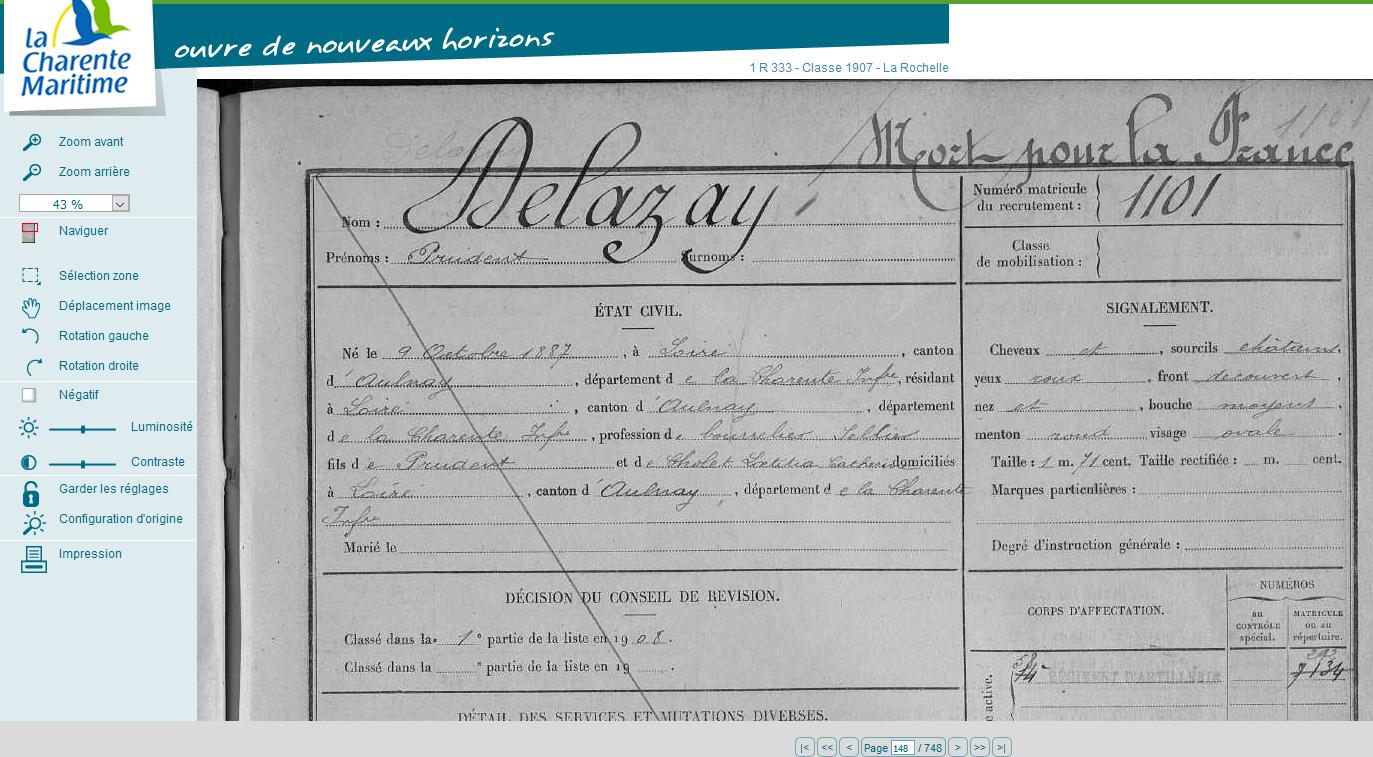 La
Charente
Maritime
ouvre de nouveaux horizons
1 R 333 - Classe 1907 - La Rochelle
Zoom avant
Zoom arrière
43 %
Naviguer
Sélection zone
Déplacement image
Rotation gauche
Rotation droite
Négatif
Luminosité
Contraste
Garder les réglages
Configuration d'origine
Impression
Mort pour la France
1101
Nom : Delazay
Prénoms : Prudent Surnoms :
Numéro matricule
du recrutement : 1101
Classe
de mobilisation :
ÉTAT CIVIL.
Né le 9 Octobre 1887, à Loiré, canton
d'Aulnay, département de la Charente Infre, résidant
à Loiré, canton d'Aulnay, département
de la Charente Infre, profession de bourrelier Sellier
fils de Prudent et de Cholet Lætitia domiciliés
à Loiré, canton d'Aulnay, département de la Charente
Infre
Marié le
SIGNALEMENT.
Cheveux et, sourcils châtains,
yeux roux, front découvert,
nez et, bouche moyens,
menton rond visage ovale.
Taille : 1 m. 71 cent. Taille rectifiée : m. cent.
Marques particulières :
Degré d'instruction générale :
DÉCISION DU CONSEIL DE REVISION.
Classé dans la 1e partie de la liste en 1908.
Classé dans la e partie de la liste en 19 .
DÉTAIL DES SERVICES ET MUTATIONS DIVERSES.
CORPS D'AFFECTATION.
NUMÉROS
au
CONTRÔLE
spécial.
MATRICULE
ou au
répertoire.
e active.
RÉGIMENT D'ARTILLERIE
7134
|< << < Page 148 / 748 > >> >|